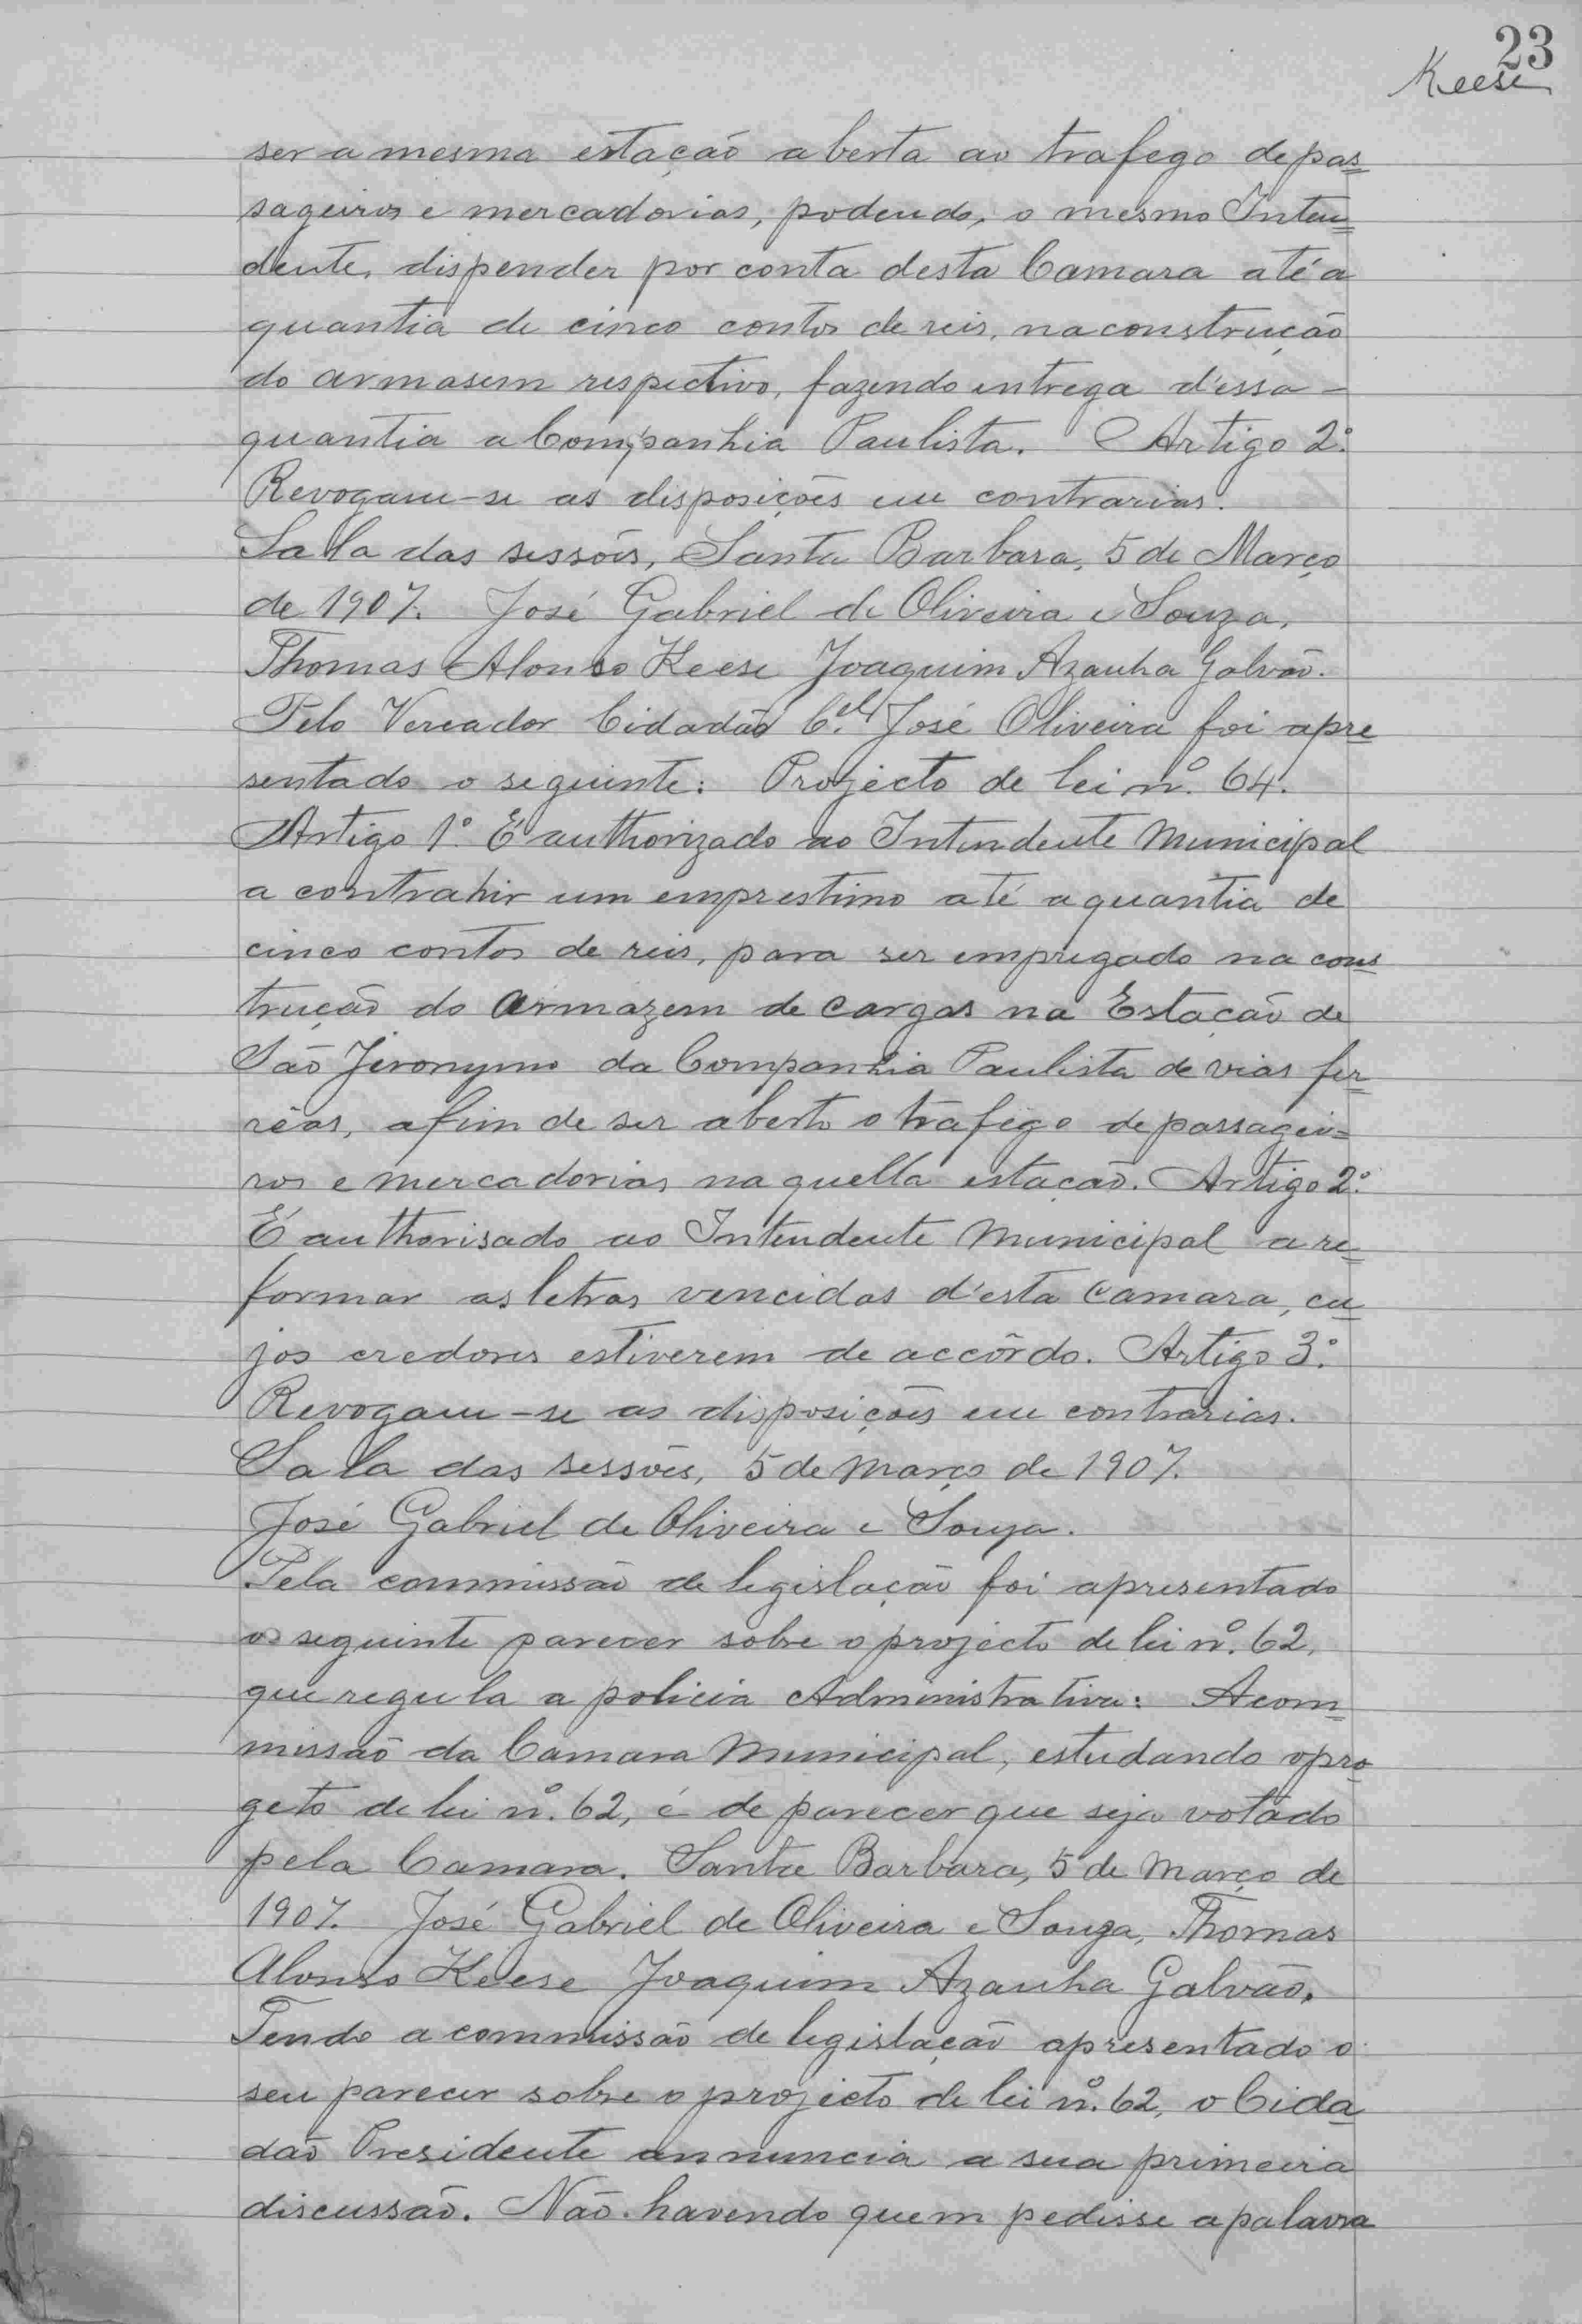 23
Keese
ser a mesma estação aberta ao trafego de pas=
sageiros e mercadorias, podendo, o mesmo Inten=
dente, dispender por conta desta Camara até a
quantia de cinco contos de reis, na construção
do armasem respectivo, fazendo entrega d'essa -
quantia a Companhia Paulista. Artigo 2º.
Revogam-se as disposições em contrarias.
Sala das sessões, Santa Barbara, 5 de Março
de 1907. José Gabriel de Oliveira e Souza,
Thomas Alonso Keese Joaquim Azanha Galvão.
Pelo Vereador Cidadão Cel. José Oliveira foi apre
sentado o seguinte: Projecto de lei nº. 64.
Artigo 1º. É authorizado ao Intendente Municipal
a contrahir um emprestimo até a quantia de
cinco contos de reis, para ser empregado na cons
trução do armazem de cargas na Estação de
São Jeronymo da Companhia Paulista de vias fer
rêas, afim de ser aberto o trafego de passagei=
ros e mercadorias naquella estação. Artigo 2º.
É authorisado ao Intendente Municipal a re=
formar as letras vencidas d'esta Camara, cu
jos credores estiverem de accôrdo. Artigo 3º.
Revogam-se as disposições em contrarias.
Sala das sessões, 5 de março de 1907.
José Gabriel de Oliveira e Souza.
Pela commissão de legislação foi apresentado
o seguinte parecer sobre o projecto de lei nº. 62,
que regula a policia Administrativa: A com=
missão da Camara Municipal, estudando o pro
geto de lei nº. 62, é de parecer que seja votado
pela Camara. Santa Barbara, 5 de Março de
1907. José Gabriel de Oliveira e Souza, Thomas
Alonso Keese Joaquim Azanha Galvão.
Tendo a commissão de legislação apresentado o
seu parecer sobre o projecto de lei nº. 62, o Cida
dão Presidente annuncia a sua primeira
discussão. Não havendo quem pedisse a palavra